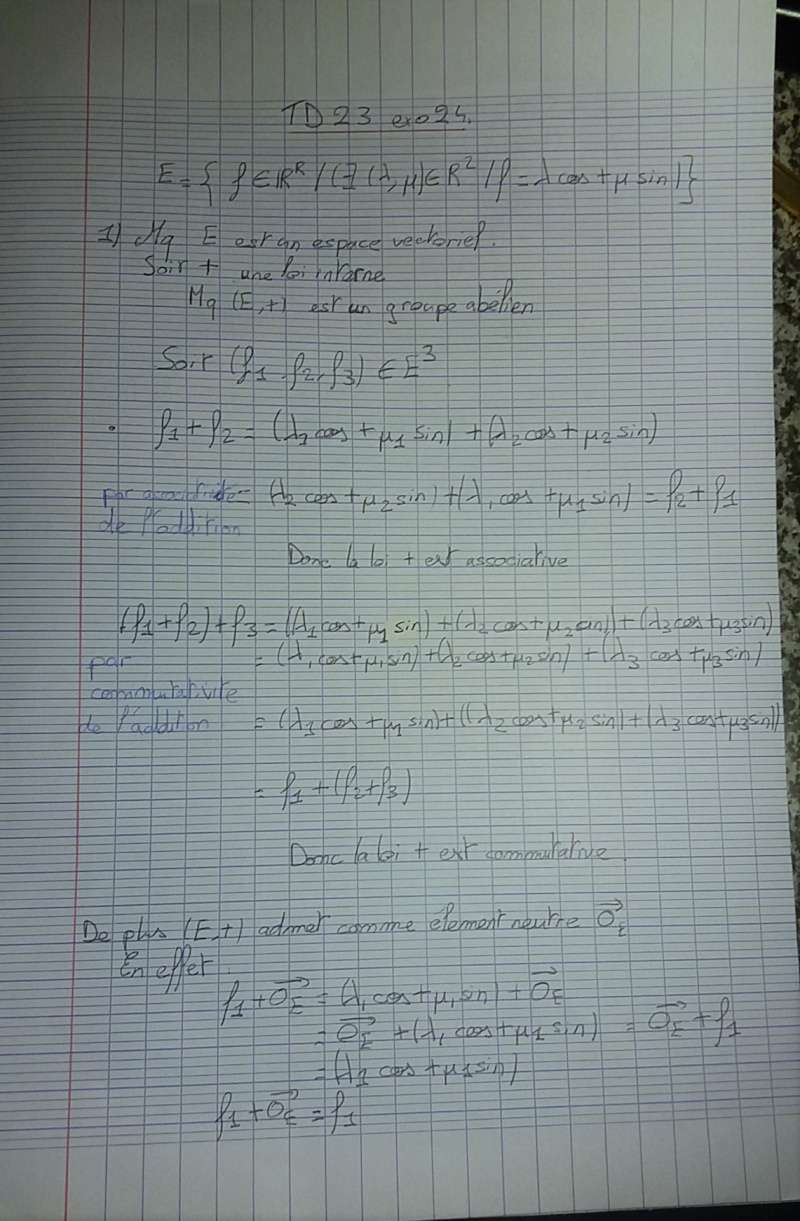 TD 23 exo 24.
E = { f ∈ ℝ^ℝ / (∃ (λ,μ) ∈ ℝ² / f = λ cos + μ sin) }
1) Mq E est un espace vectoriel.
Soit + une loi interne
Mq (E,+) est un groupe abélien
Soit (f1, f2, f3) ∈ E³
• f1 + f2 = (λ1 cos + μ1 sin) + (λ2 cos + μ2 sin)
par = (λ2 cos + μ2 sin) + (λ1 cos + μ1 sin) = f2 + f1
de l'addition
Donc la loi + est associative
(f1 + f2) + f3 = ((λ1 cos + μ1 sin) + (λ2 cos + μ2 sin)) + (λ3 cos + μ3 sin)
par = (λ1 cos + μ1 sin) + (λ2 cos + μ2 sin) + (λ3 cos + μ3 sin)
commutativite
de l'addition = (λ1 cos + μ1 sin) + ((λ2 cos + μ2 sin) + (λ3 cos + μ3 sin))
= f1 + (f2 + f3)
Donc la loi + est commutative.
De plus (E,+) admet comme element neutre 0⃗E
En effet.
f1 + 0⃗E = (λ1 cos + μ1 sin) + 0⃗E
= 0⃗E + (λ1 cos + μ1 sin) = 0⃗E + f1
= (λ1 cos + μ1 sin)
f1 + 0⃗E = f1